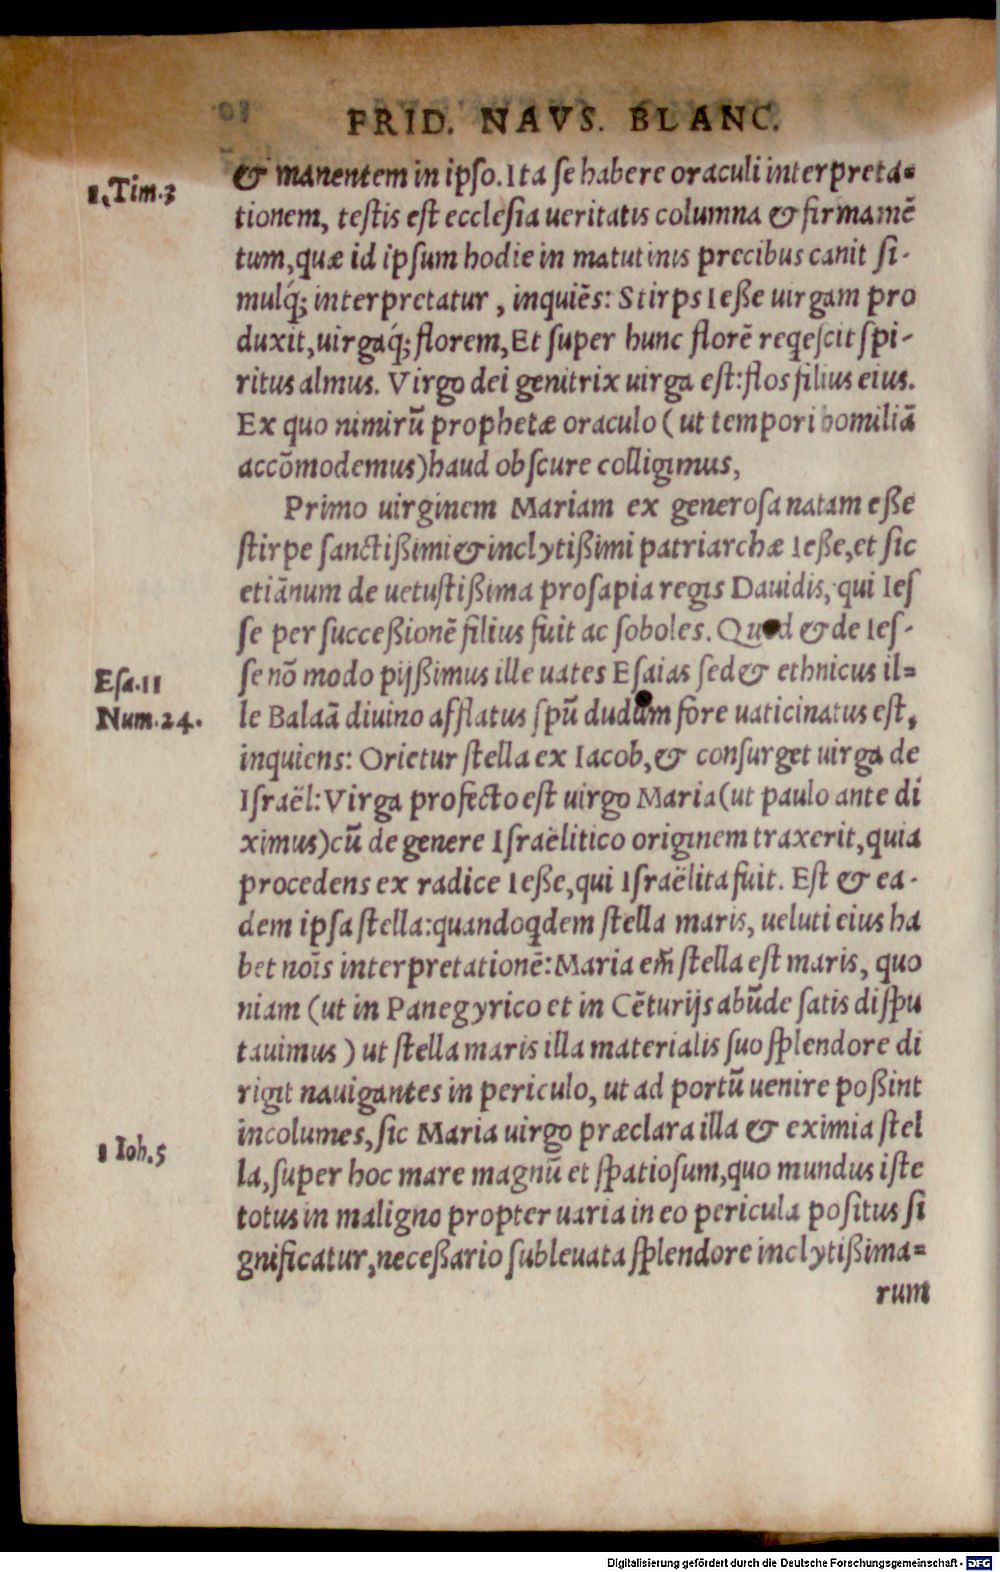 FRID. NAVS. BLANC.
& manentem in ipso. Ita se habere oraculi interpreta=
1. Tim. 3
tionem, testis est ecclesia ueritatis columna & firmamẽ
tum, quæ id ipsum hodie in matutinis precibus canit si-
mulq́; interpretatur, inquiẽs: Stirps Ieße uirgam pro
duxit, uirgaq́; florem, Et super hunc florẽ reqescit spi-
ritus almus. Virgo dei genitrix uirga est: flos filius eius.
Ex quo nimirũ prophetæ oraculo (ut tempori homiliã
accõmodemus) haud obscure colligimus,
Primo uirginem Mariam ex generosa natam eße
stirpe sanctißimi & inclytißimi patriarchæ Ieße, et sic
etiãnum de uetustißima prosapia regis Dauidis, qui Ies
se per succeßionẽ filius fuit ac soboles. Quod & de Ies-
se nõ modo pijßimus ille uates Esaias sed & ethnicus il=
Esa. 11
Num. 24.
le Balaã diuino afflatus spũ dudum fore uaticinatus est,
inquiens: Orietur stella ex Iacob, & consurget uirga de
Israël: Virga profecto est uirgo Maria (ut paulo ante di
ximus) cũ de genere Israëlitico originem traxerit, quia
procedens ex radice Ieße, qui Israëlita fuit. Est & ea-
dem ipsa stella: quandoqdem stella maris, ueluti eius ha
bet noĩs interpretationẽ: Maria em̃ stella est maris, quo
niam (ut in Panegyrico et in Cẽturijs abũde satis dispu
tauimus) ut stella maris illa materialis suo splendore di
rigit nauigantes in periculo, ut ad portũ uenire poßint
incolumes, sic Maria uirgo præclara illa & eximia stel
1 Ioh. 5
la, super hoc mare magnũ et spatiosum, quo mundus iste
totus in maligno propter uaria in eo pericula positus si
gnificatur, neceßario subleuata splendore inclytißima=
rum
Digitalisierung gefördert durch die Deutsche Forschungsgemeinschaft - DFG